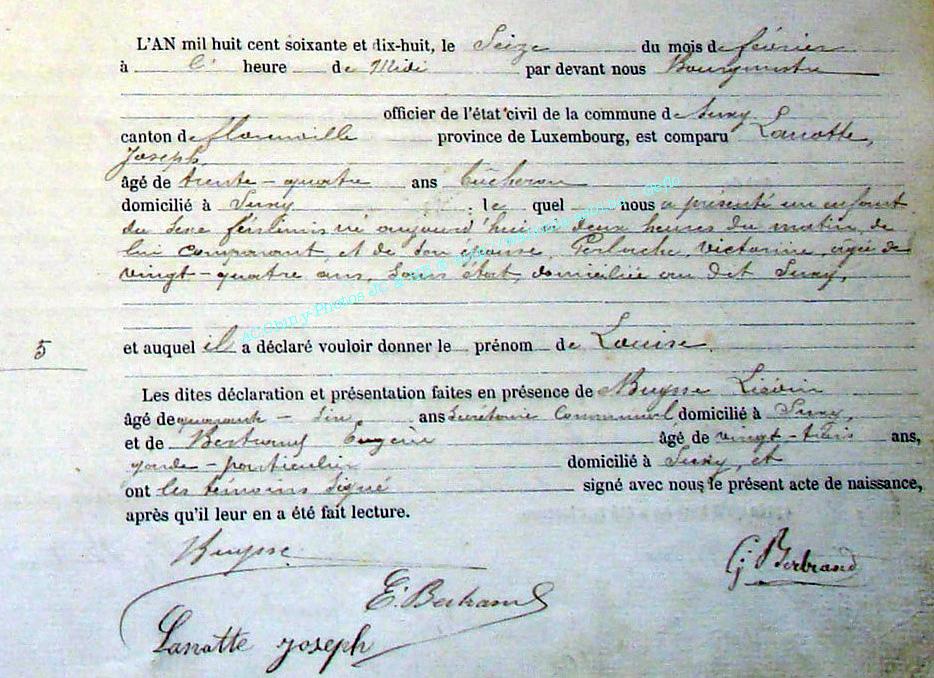 L'AN mil huit cent soixante et dix-huit, le Seize du mois de février
à l' heure de Midi par devant nous Bourgmestre
officier de l'état civil de la commune de Suxy
canton de florenville province de Luxembourg, est comparu Lanotte,
Joseph,
âgé de trente-quatre ans bûcheron
domicilié à Suxy ; le quel nous a présenté un enfant
du sexe féminin né aujourd'hui à deux heures du matin, de
lui comparant, et de son épouse, Perlache, Victorine, agée de
vingt-quatre ans, sans état, domiciliée au dit Suxy,
5
et auquel il a déclaré vouloir donner le prénom de Louise.
Les dites déclaration et présentation faites en présence de Buysse Liévin
âgé de quarante-six ans Secrétaire Communal domicilié à Suxy,
et de Bertrand Eugène âgé de vingt-trois ans,
garde-particulier domicilié à Suxy, et
ont les témoins signé signé avec nous le présent acte de naissance,
après qu'il leur en a été fait lecture.
Buysse
G Bertrand
E. Bertrand
Lanotte joseph